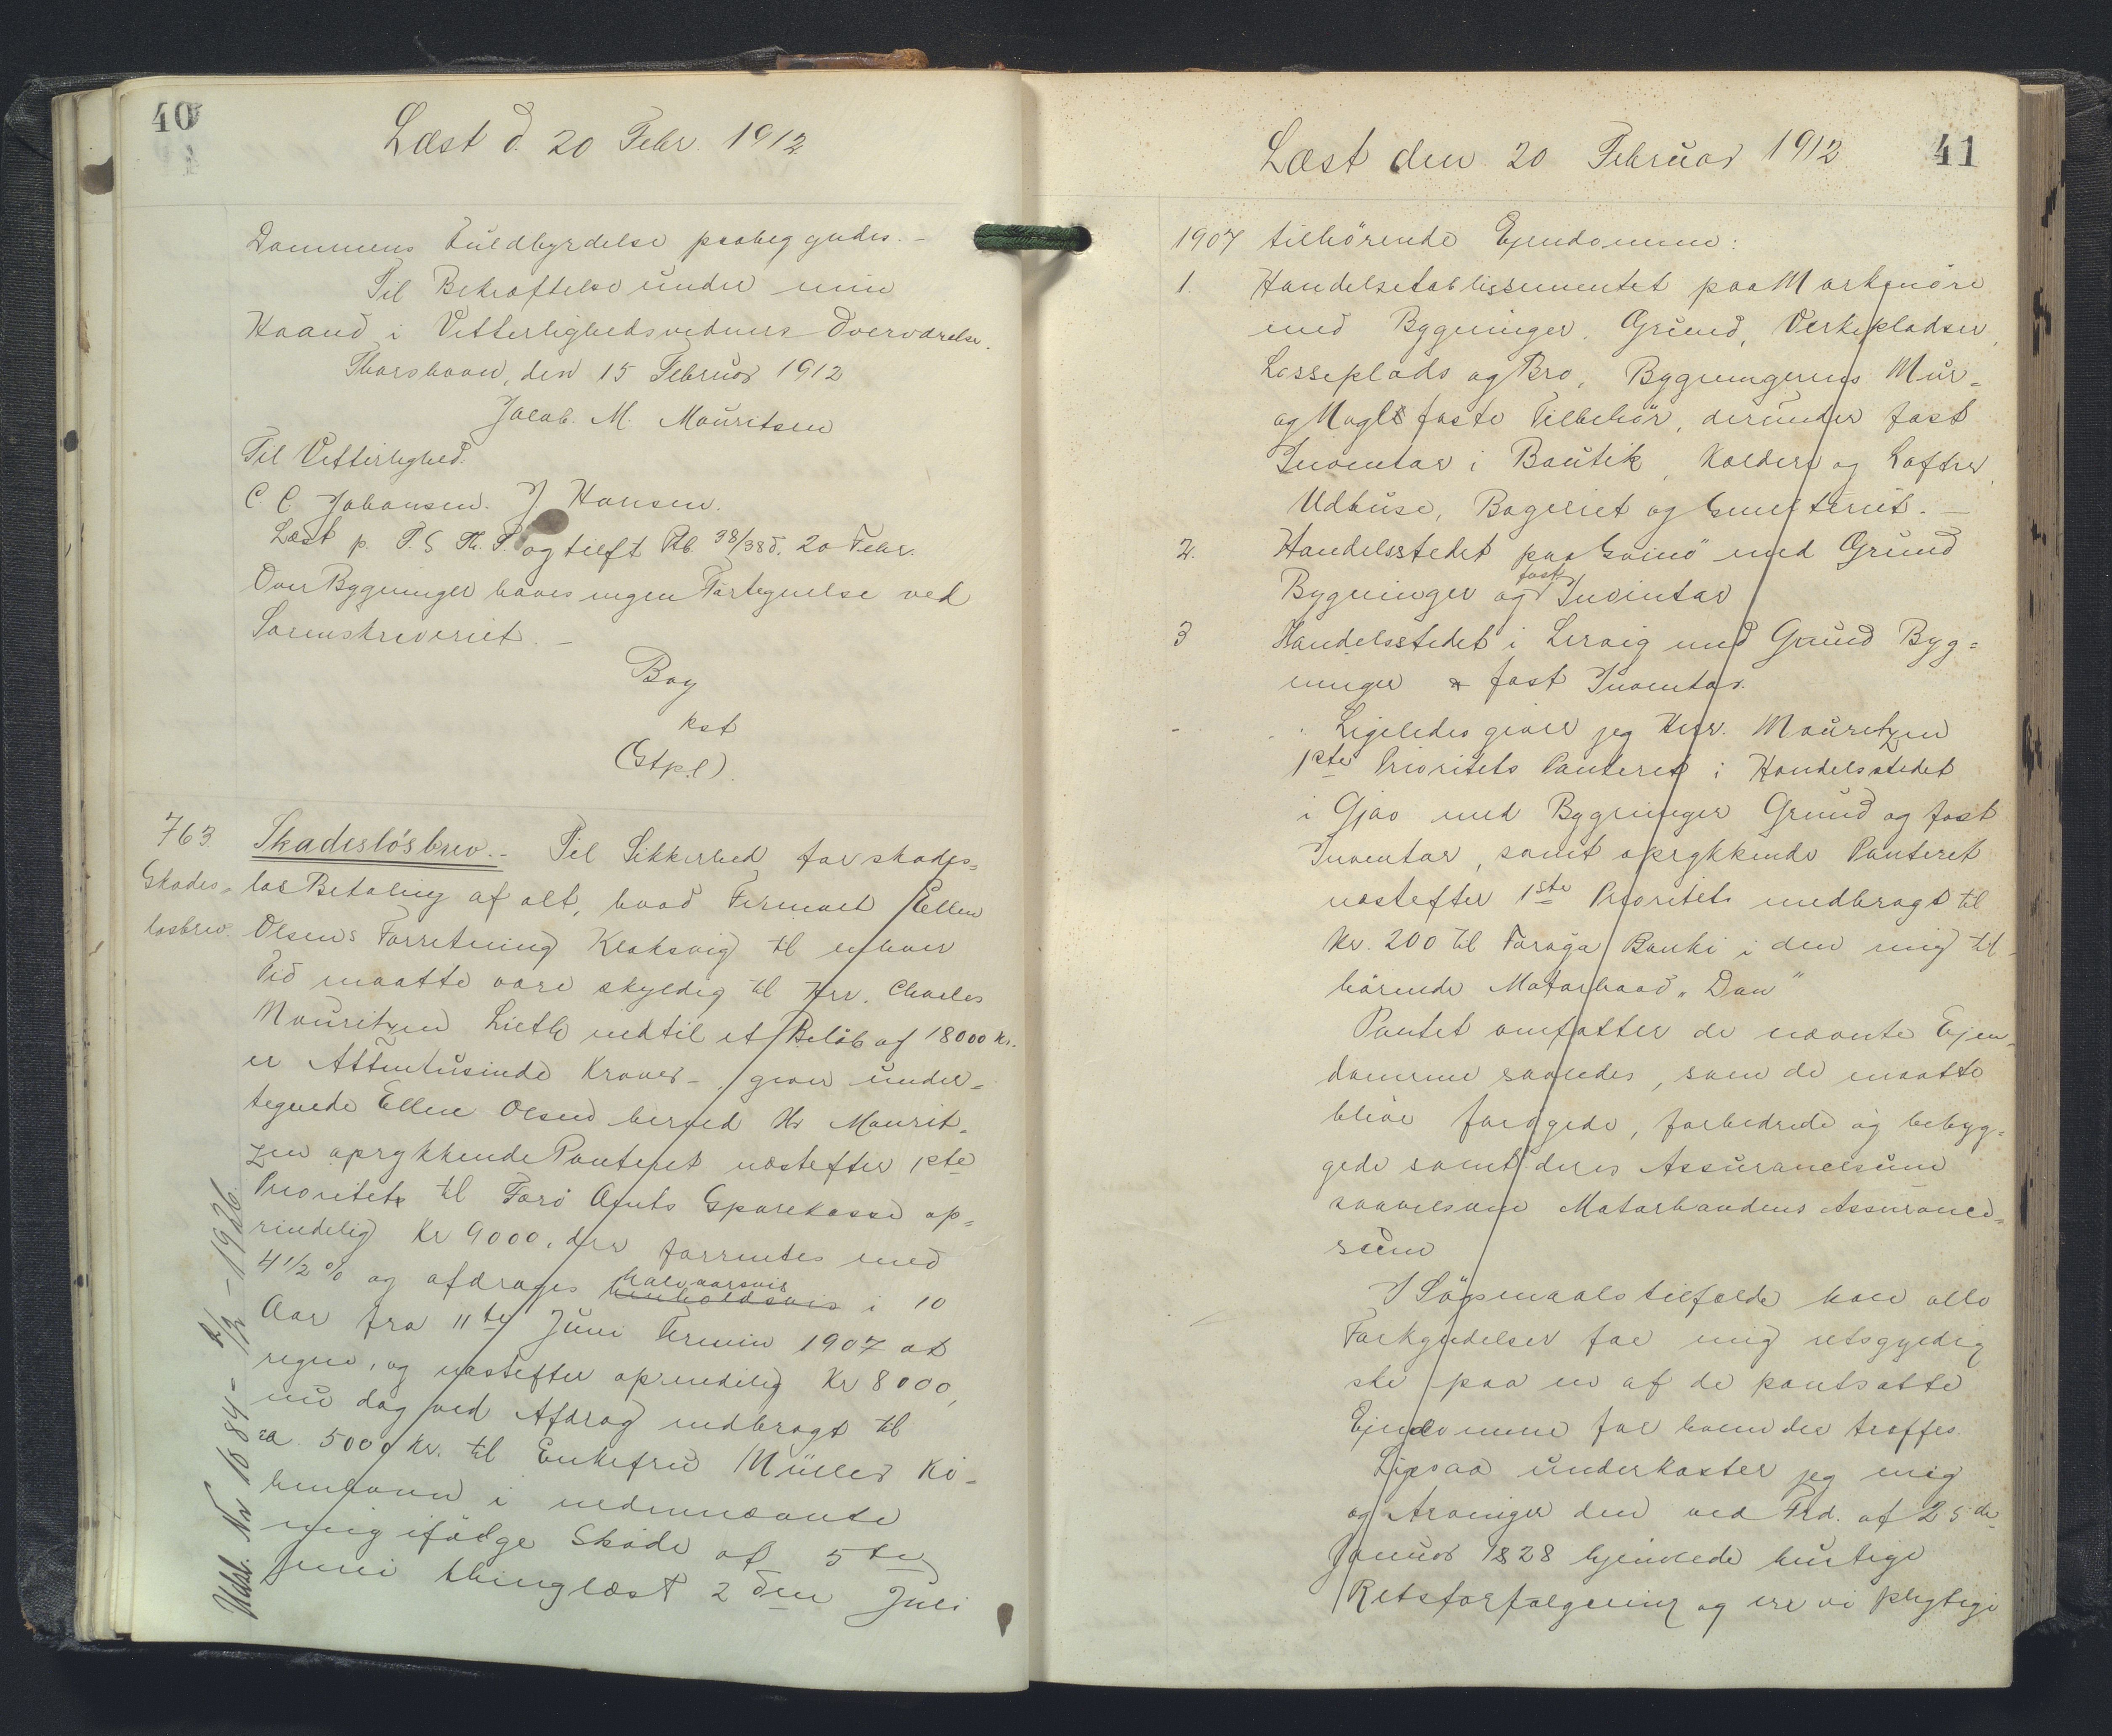 40
Læst d. 20 Febr. 1912
Dommens Fuldbyrdelse paabegyndes. –
Til Bekræftelse under min
Haand i Vitterlighedsvidners Overværelse.
Thorshavn, den 15 Februar 1912
Jacob. M. Mouritsen
Til Vitterlighed.
C. C. Johansen. J Hansen.
Læst p. T. S Th. P. og tilft Rb 38/38 d. 20 Febr.
Over Bygninger haves ingen Fortegnelse ved
Sorenskriveriet. –
Bay
kst
(Stpl).
763. Skadesløsbrev. – Til Sikkerhed for skades=
Skades= løs Betaling af alt, hvad Firmaet Ellen
løsbrev. Olsens Forretning Klaksvig til enhver
Tid maatte være skyldig til Hrr. Charles
Mouritzen Lieth indtil et Beløb af 18000 Kr.
er Attentusinde Kroner – giver under=
tegnede Ellen Olsen herved Hr Mourit=
zen oprykkende Panteret næstefter 1ste
Prioritet til Færø Amts Sparekasse op=
rindelig Kr 9000, der forrentes med
4 1/2 % og afdrages halvaarsvis i 10
Aar fra 11te Juni Termin 1907 at
regne, og næstefter oprindelig Kr 8000,
nu dog ved Afdrag nedbragt til
ca 5000 Kr. til Enkefru Müller Kø=
benhavn i nedennævnte
mig ifølge Skøde af 5te
Juni thinglæst 2den Juli
Udsl. Nr 1684 – 1926.
Læst den 20 Februar 1912
41
1907 tilhørende Ejendomme:
1. Handelsetablissementet paa Markenøre
med Bygninger, Grund, Virkepladser,
Losseplads og Bro, Bygningernes Mur=
og Naglefaste Tilbehør, derunder fast
Inventar i Boutik, Kældere og Lofter,
Udhuse, Bageriet og Smesteriet. –
2. Handelsstedet paa Svinø med Grund
Bygninger og fast Inventar
3 Handelsstedet i Lervig med Grund Byg=
ninger & fast Inventar.
Ligeledes giver jeg Herr. Mouritzen
1ste Prioritets Panteret i Handelsstedet
i Gjov med Bygninger Grund og fast
Inventar, samt oprykkende Panteret
næstefter 1ste Prioritet nedbragt til
Kr. 200 til Føroya Banki i den mig til=
hørende Motorbaad „Dan“
Pantet omfatter de nævnte Ejen=
domme saaledes, som de maatte
blive forøgede, forbedrede og bebyg=
gede samt deres Assurancesum
saavelsom Motorbaadens Assurance=
sum
I Søgsmaalstilfælde kan alle
Forkyndelser for mig retsgyldig
ske paa en af de pantsatte
Ejendomme for hvem der træffes.
Ligesaa underkaster jeg mig
og Arvinger den ved Frd. af 25de
Januar 1828 hjemlede hurtige
Retsforfølgning og ere vi pligtige